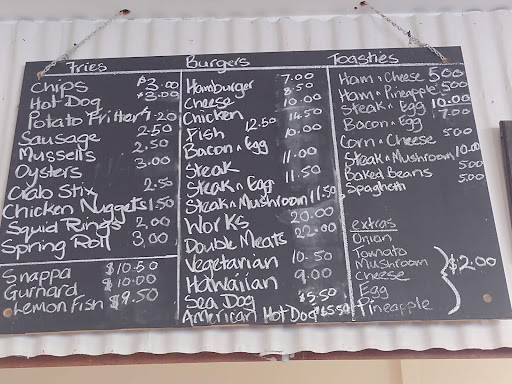 Fries
Chips $3.00
Hot Dog $3.00
Potato Fritters 1.20
Sausage 2.50
Mussels 2.50
Oysters 3.00
Crab Stix 2.50
Chicken Nuggets 1.50
Squid Rings 2.00
Spring Roll 3.00
Snappa $10.50
Gurnard $10.00
Lemon Fish $9.50
Burgers
Hamburger 7.00
Cheese 8.50
Chicken 10.00
Fish 12.50
Bacon n Egg 10.00
Steak 11.00
Steak n Egg 11.50
Steak n Mushroom 11.50
Works 20.00
Double Meats 22.00
Vegetarian 10.50
Hawaiian 9.00
Sea Dog $5.50
American Hot Dog $5.50
Toasties
Ham n Cheese 5.00
Ham n Pineapple 5.00
Steak n Egg 10.00
Bacon n Egg 7.00
Corn n Cheese 5.00
Steak n Mushroom 10.00
Baked Beans 5.00
Spaghetti 5.00
extras
Onion
Tomato
Mushroom
Cheese $2.00
Egg
Pineapple